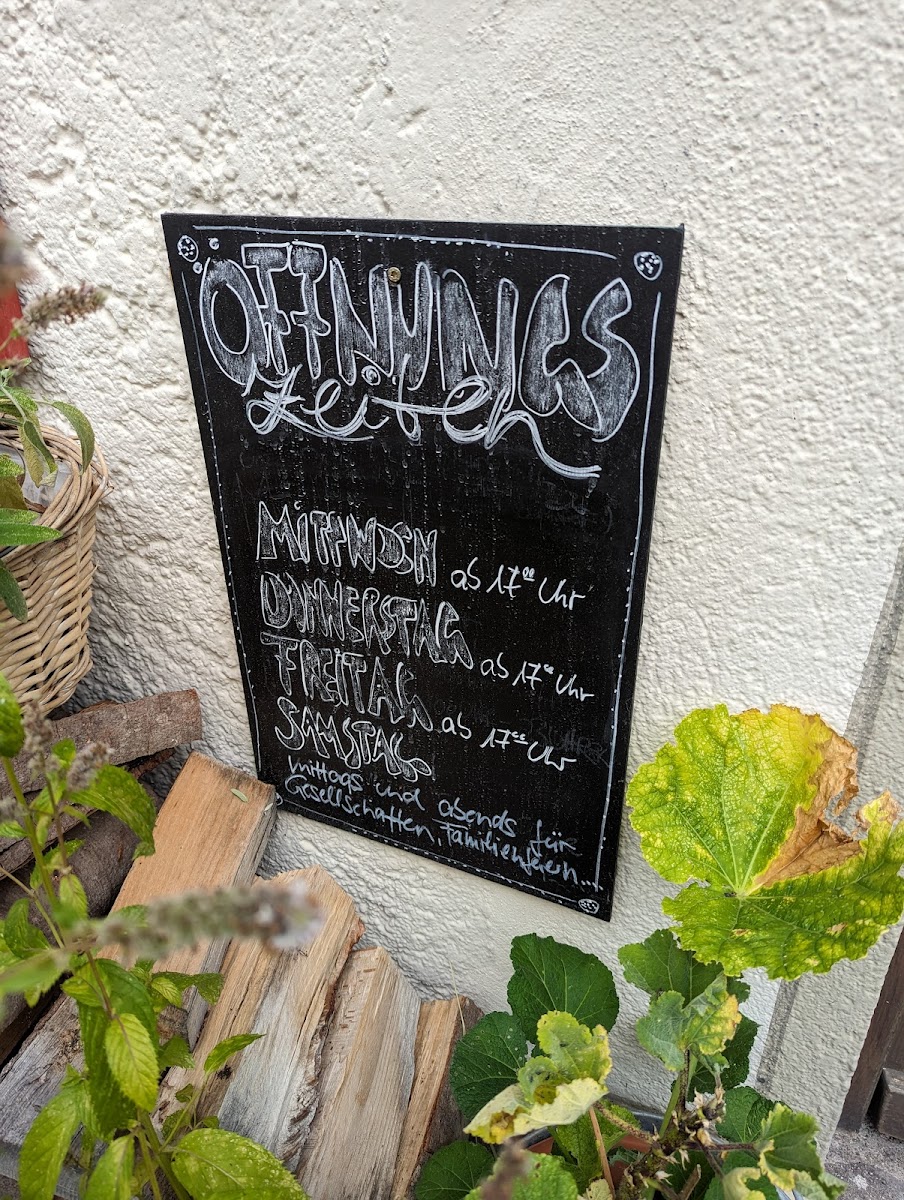 ÖFFNUNGS
zeiten
MITTWOCH ab 17°° Uhr
DONNERSTAG ab 17°° Uhr
FREITAG ab 17°° Uhr
SAMSTAG
mittags und abends für
Gesellschaften, Familienfeiern...